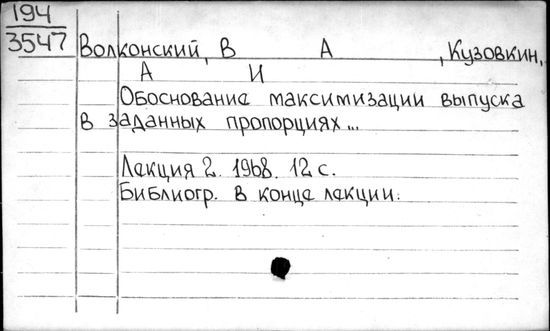 194
3547
Волконский, В А , Кузовкин,
А И
Обоснование максимизации выпуска
в заданных пропорциях...
Лекция 2. 1968. 12 с.
Библиогр. в конце лекции.